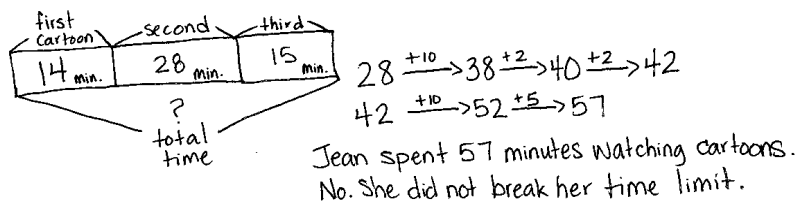 first
cartoon
second
third
14 min.
28 min.
15 min.
?
total
time
28 +10 → 38 +2 → 40 +2 → 42
42 +10 → 52 +5 → 57
Jean spent 57 minutes watching cartoons.
No. She did not break her time limit.